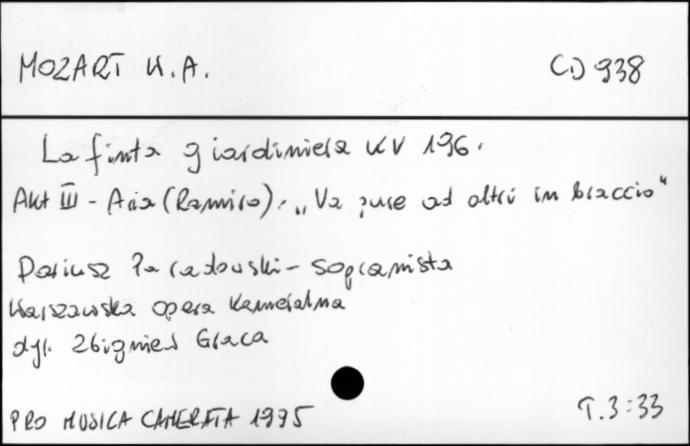 MOZART W.A. CD 938
La finta giardiniera KV 196.
Akt III - Aria (Ramiro): „Va pure ad altri in braccio"
Dariusz Paradowski - sopranista
Warszawska Opera Kameralna
dyr. Zbigniew Graca
PRO MUSICA CAMERATA 1995 T.3:33